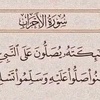 سُورَةُ الأَحْزَاب
ئِكَتَهُ يُصَلُّونَ عَلَى النَّبِيِّ
نُوا صَلُّوا عَلَيْهِ وَسَلِّمُوا تَسْلِ